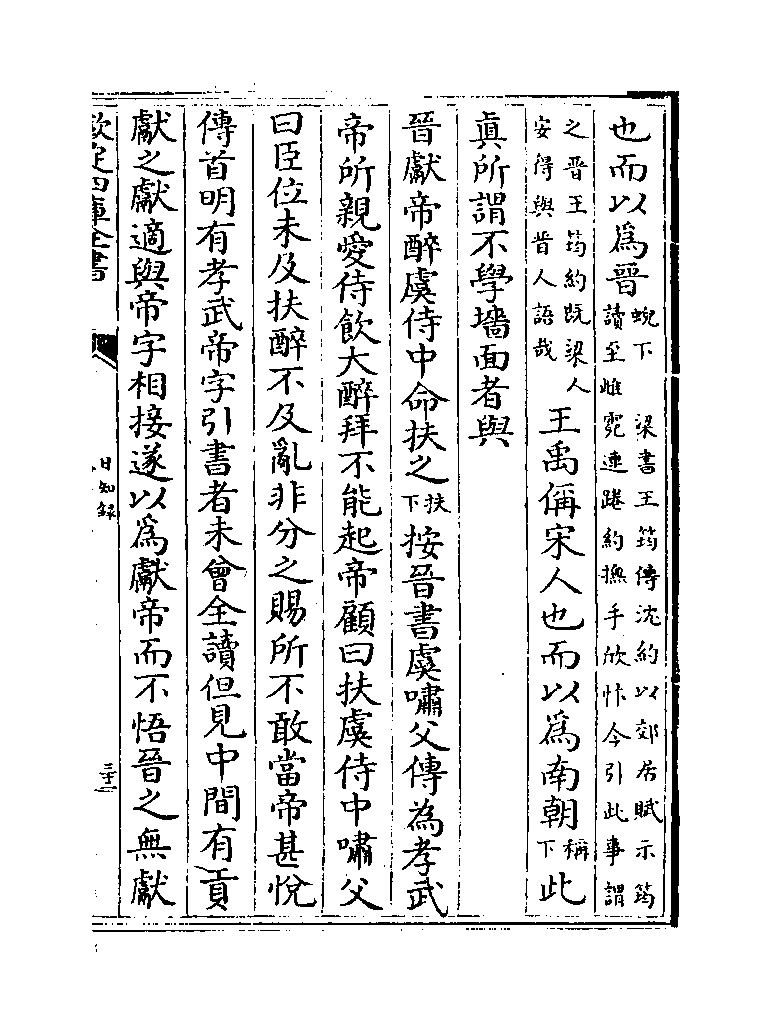 也而以爲晉蜺下　梁書王筠傳沈約以郊居賦示筠
讀至雌霓連踡約撫手欣忭今引此事謂
之晉王筠約既梁人
安得與晉人語哉
王禹偁宋人也而以爲南朝稱下此
眞所謂不學墻面者與
晉獻帝醉虞侍中命扶之扶下按晉書虞嘯父傳為孝武
帝所親愛侍飲大醉拜不能起帝顧曰扶虞侍中嘯父
曰臣位未及扶醉不及亂非分之賜所不敢當帝甚悅
傳首明有孝武帝字引書者未曾全讀但見中間有貢
獻之獻適與帝字相接遂以爲獻帝而不悟晉之無獻
欽定四庫全書
日知錄